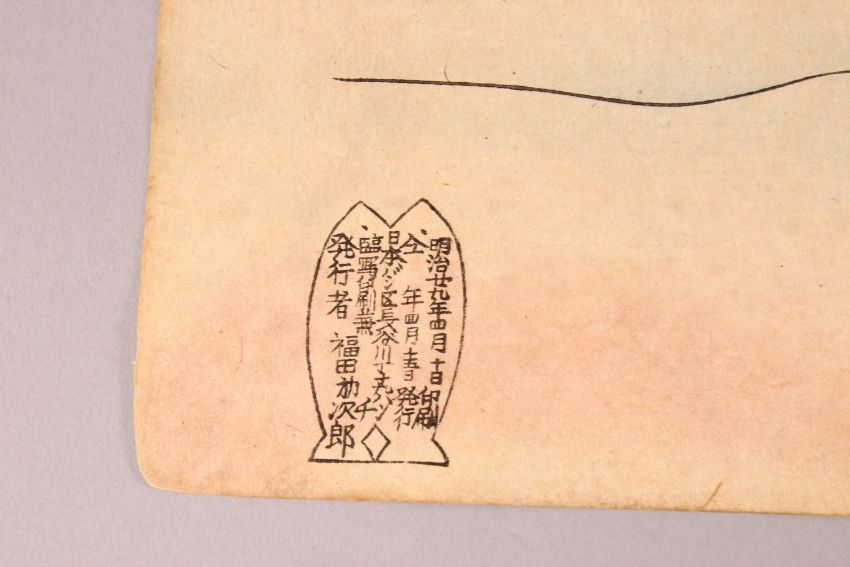 明治廿九年四月十日印刷
仝年四月十五日発行
日本バシ区長谷川丁十九バンチ
臨写印刷兼
発行者 福田初次郎